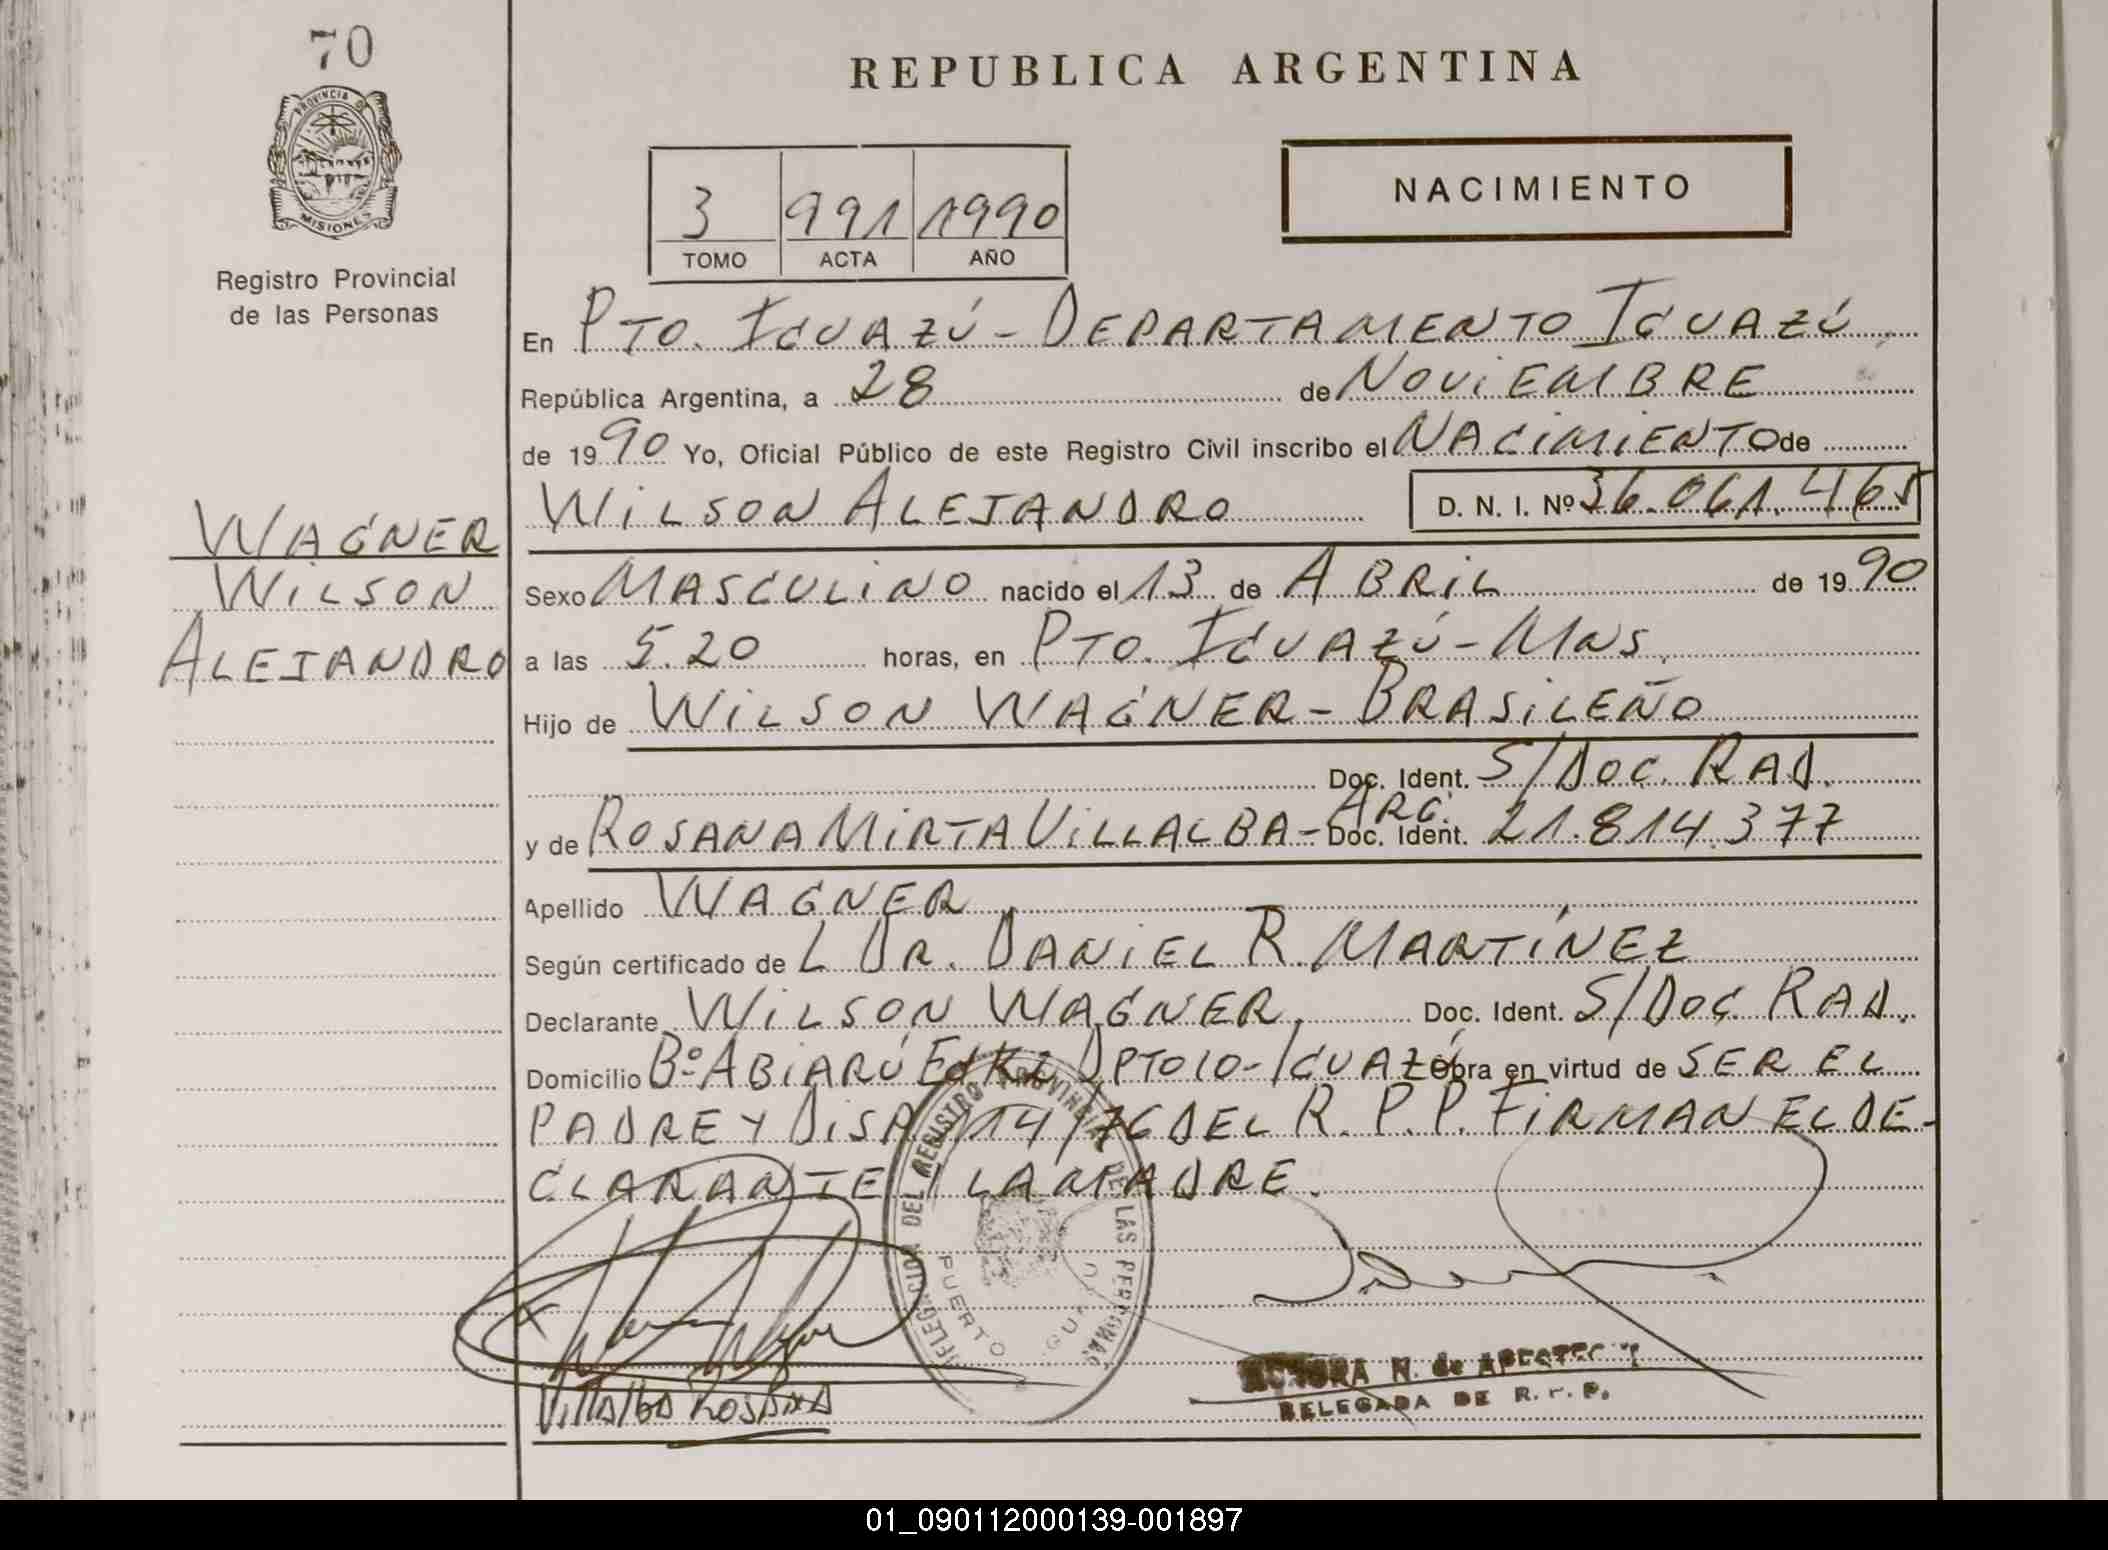 70
PROVINCIA DE
MISIONES
Registro Provincial
de las Personas
WAGNER
WILSON
ALEJANDRO
REPUBLICA ARGENTINA
3 991 1990
TOMO ACTA AÑO
NACIMIENTO
En PTO. IGUAZÚ - DEPARTAMENTO IGUAZÚ
República Argentina, a 28 de NOVIEMBRE
de 1990 Yo, Oficial Público de este Registro Civil inscribo el NACIMIENTO de
WILSON ALEJANDRO D. N. I. Nº 36.061.465
Sexo MASCULINO nacido el 13 de ABRIL de 1990
a las 5.20 horas, en PTO. IGUAZÚ - MNS.
Hijo de WILSON WAGNER - BRASILEÑO
Doc. Ident. S/DOC. RAD.
y de ROSANA MIRTA VILLALBA - ARG. Doc. Ident. 21.814.377
Apellido WAGNER
Según certificado de L DR. DANIEL R. MARTÍNEZ
Declarante WILSON WAGNER, Doc. Ident. S/DOC. RAD.
Domicilio Bº ABIARÚ DPTO 10 - IGUAZÚ Obra en virtud de SER EL
PADRE Y DISP. 114/76 DEL R. P. P. FIRMAN EL DE-
CLARANTE Y LA MADRE.
DELEGACION DEL REGISTRO PROVINCIAL DE LAS PERSONAS
PUERTO IGUAZU
VillAlbA RosAnA
N. de
DELEGADA DE R. P. P.
01_090112000139-001897